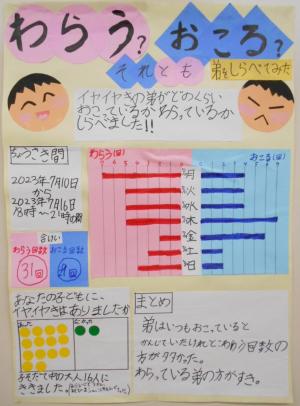 わらう? おこる?
それとも 弟をしらべてみた
イヤイヤきの弟がどのくらい
わらっているかおこっているか
しらべました!!
ちょうさき間
2023年7月10日
から
2023年7月16日
18時〜21時の間
合けい
わらう回数 おこる回数
31回
わらう(回) おこる(回)
月
火
水
木
金
土
日
あなたの子どもに、
イヤイヤきはありましたか
子そだて中の大人16人に
ききました。
まとめ
弟はいつもおこっていると
かんじていたけれどわらう回数の
方が多かった。
わらっている弟の方がすき。